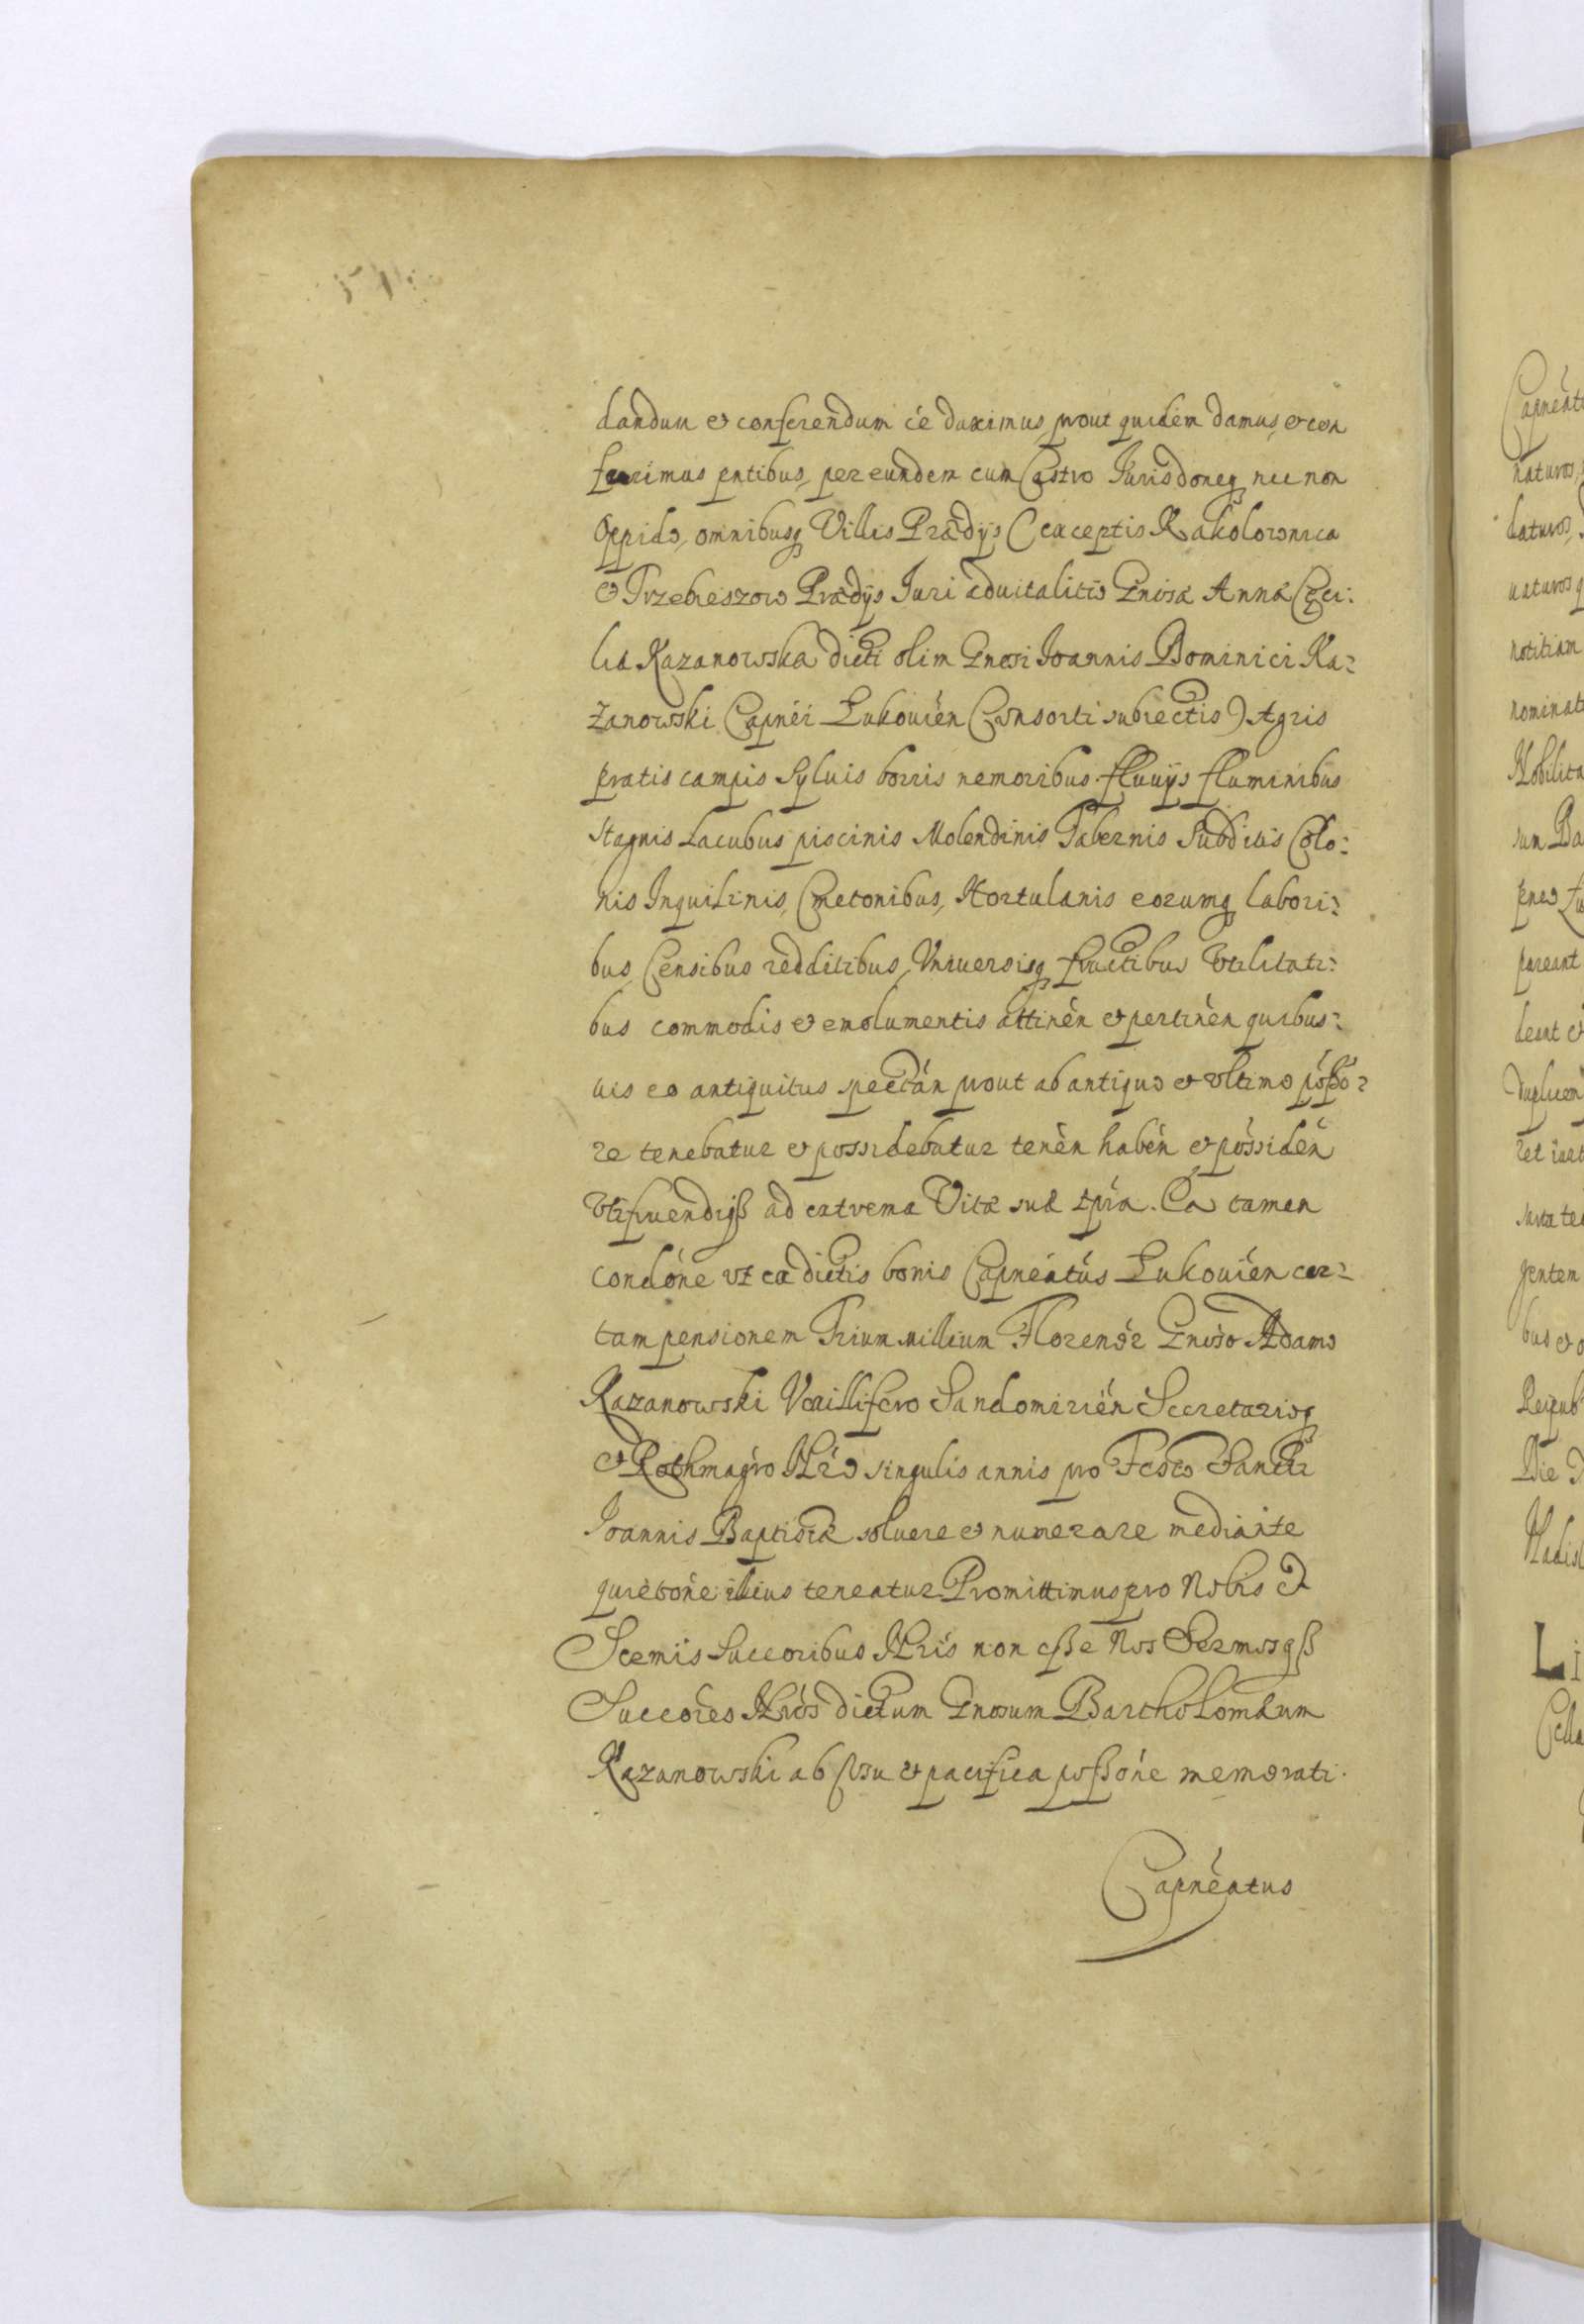 dandum et conferendum ée duximus, prout quidem damus, et con
ferimus pntibus, per eundem cum Castro Jurisdoneq nec non
Oppido, omnibusq Villis Prædijs (exceptis Rakolownica
et Trzebieszow Prædijs Juri aduitalitio Gnosæ Annæ Ceci:
liæ Kazanowska dicti olim Gnosi Joannis Dominici Ka:
zanowski Capnéi Lukouién Consorti subiectis) Agris
pratis campis Syluis borris nemoribus fluuijs fluminibus
Stagnis Lacubus piscinis Molendinis Tabernis Subditis Colo:
nis Inquilinis, Cmetonibus, Hortulanis eorumq labori:
bus, Censibus redditibus, Vniuersisq fructibus Vtilitati:
bus commodis et emolumentis attinén et pertinén quibus:
uis eo antiquitus spectán prout ab antiquo et vltimo pósso:
re tenebatur et possidebatur tenén habén et possidén
Vtifruendijß ad extrema Vitæ suæ tpra. Ea tamen
condóne vt ex dictis bonis Capnéatús Lukouién cer:
tam pensionem Trium millium Florenor Gnoso Adamo
Kazanowski Vexillifero Sandomirién Secretarioq
et Rothmagro Nró singulis annis pro Festo Sancti
Joannis Baptistæ soluere et numerare mediante
quietóne illius teneatur. Promittimus pro Nobis et
Scemis Succoribus Nris non eße Nos Sermosqß
Succóres Nros dictum Gnosum Bartholomæum
Kazanowski ab vsu et pacifica poßóne memorati
Capnéatus
Capnéat
naturos,
laturos,
uaturos q
notitiam
nominat
Nobilita
sun Da
pareant
leant et
Duplicen
ret iact
iuxta te
gentem
bus et o
Reipub
Die
Vladisl
Li